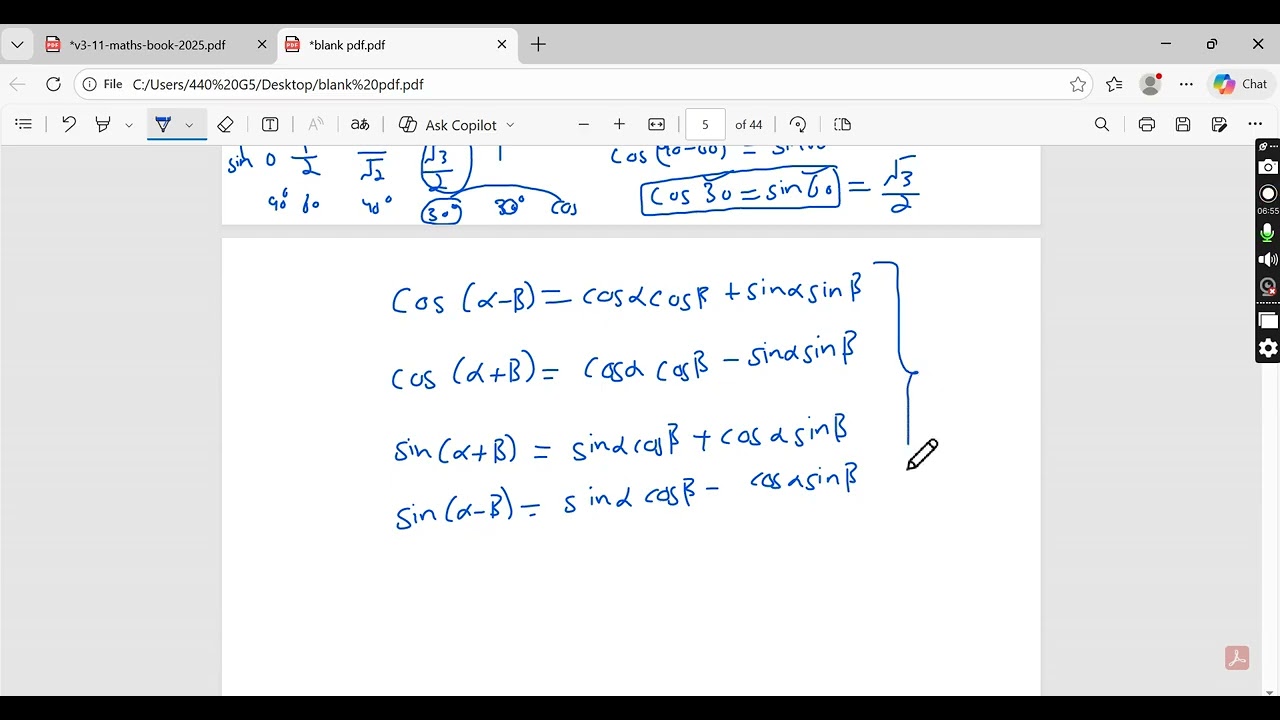 *v3-11-maths-book-2025.pdf
*blank pdf.pdf
File C:/Users/440%20G5/Desktop/blank%20pdf.pdf
Chat
Ask Copilot
5 of 44
sin 0 1/2 /√2 √3/2 1
60 30° cos
cos 30 = sin 60 = √3/2
06:55
cos (α-β) = cosα cosβ + sinα sinβ
cos (α+β) = cosα cosβ - sinα sinβ
sin(α+β) = sinα cosβ + cosα sinβ
sin(α-β) = sinα cosβ - cosα sinβ